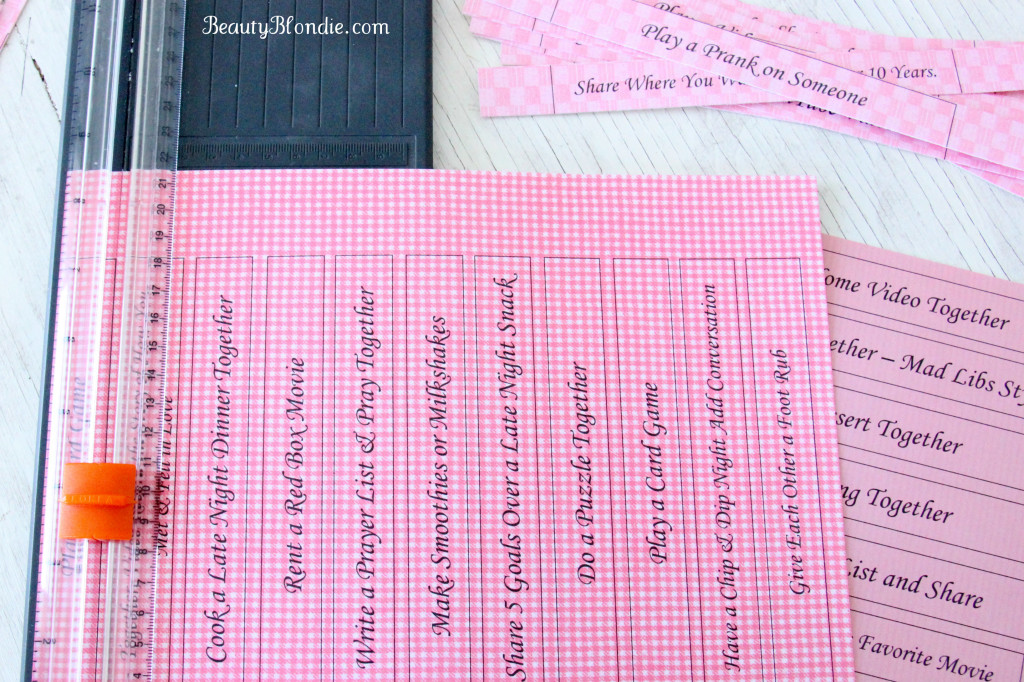 BeautyBlondie.com
Play a Prank on Someone
Share Where You
10 Years.
Play a
Met & Fell in Love
Cook a Late Night Dinner Together
Rent a Red Box Movie
Write a Prayer List & Pray Together
Make Smoothies or Milkshakes
Share 5 Goals Over a Late Night Snack
Do a Puzzle Together
Play a Card Game
Have a Chip & Dip Night Add Conversation
Give Each Other a Foot Rub
ome Video Together
ether – Mad Libs Sty
sert Together
ng Together
List and Share
Favorite Movie